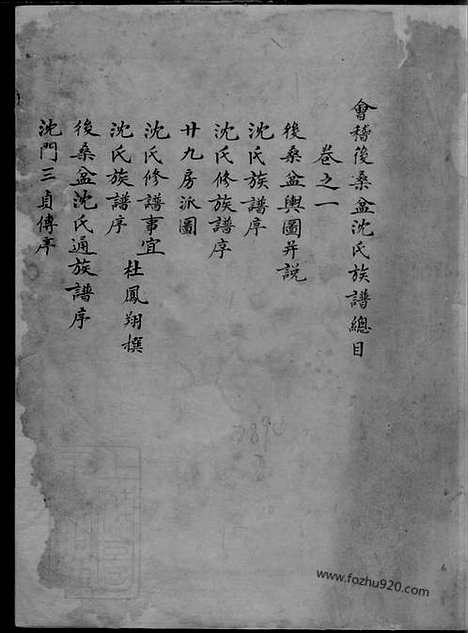 會稽後桑盆沈氏族譜總目
卷之一
後桑盆輿圖并說
沈氏族譜序
沈氏修族譜序
廿九房派圖
沈氏修譜事宜
沈氏族譜序 杜鳳翔撰
後桑盆沈氏通族譜序
沈門三貞傳序
www.fozhu920.com